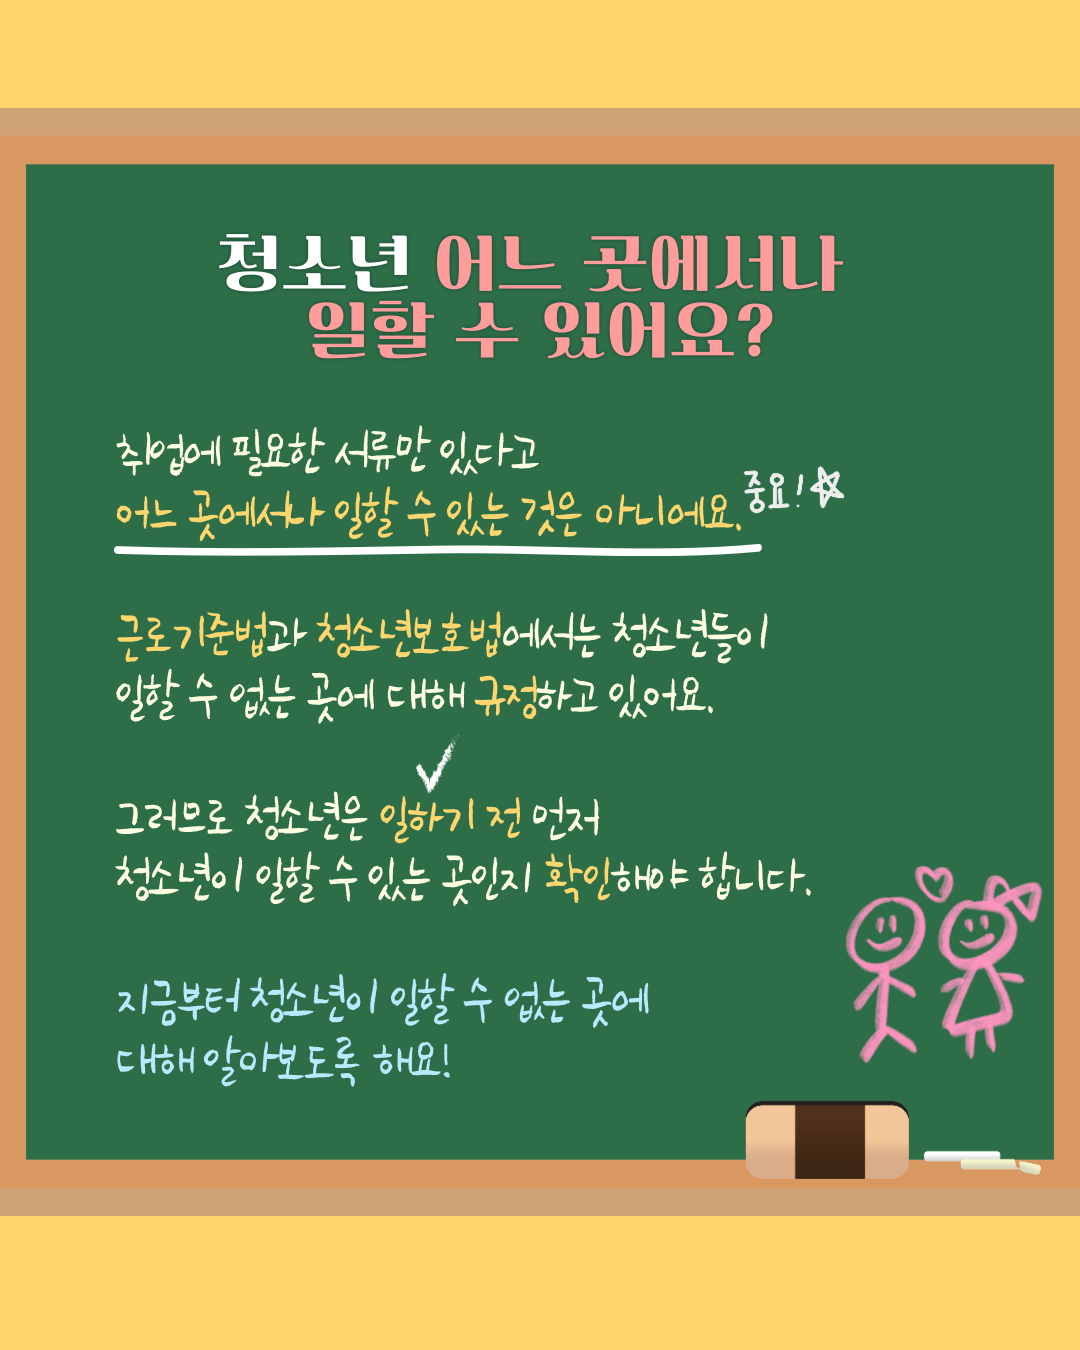 청소년 어느 곳에서나
일할 수 있어요?
취업에 필요한 서류만 있다고
어느 곳에서나 일할 수 있는 것은 아니에요.
중요!
근로기준법과 청소년보호법에서는 청소년들이
일할 수 없는 곳에 대해 규정하고 있어요.
그러므로 청소년은 일하기 전 먼저
청소년이 일할 수 있는 곳인지 확인해야 합니다.
지금부터 청소년이 일할 수 없는 곳에
대해 알아보도록 해요!